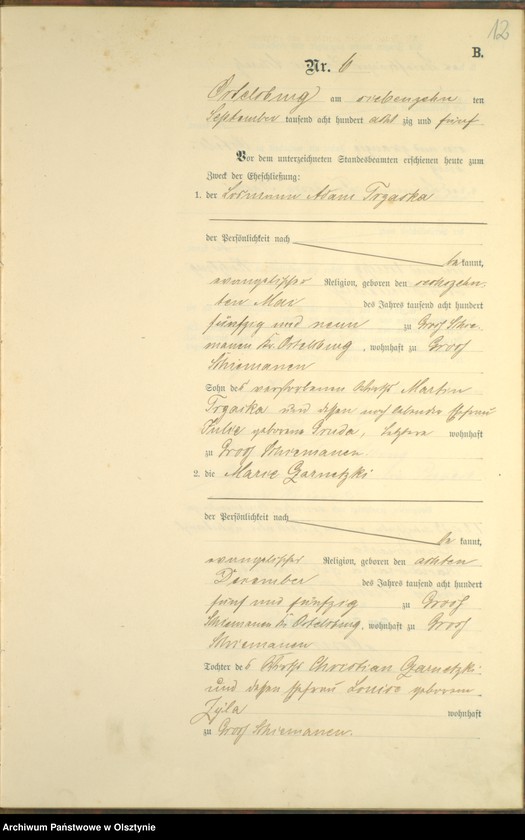 12
B.
Nr. 6
Ortelsburg am siebenzehn ten
September tausend acht hundert acht zig und fünf
Vor dem unterzeichneten Standesbeamten erschienen heute zum
Zweck der Eheschließung:
1. der Losmann Adam Trzaska
der Persönlichkeit nach
be kannt,
evangelischer Religion, geboren den sechszehn-
ten Mai des Jahres tausend acht hundert
fünfzig und neun zu Groß Schie-
manen Kr. Ortelsburg, wohnhaft zu Groß
Schiemanen
Sohn des verstorbenen Wirths Martin
Trzaska und dessen noch lebender Ehefrau
Julie geborene Gruda, letztere wohnhaft
zu Groß Schiemanen
2. die Marie Zarnetzki
der Persönlichkeit nach
be kannt,
evangelischer Religion, geboren den achten
December des Jahres tausend acht hundert
fünf und fünfzig zu Groß
Schiemanen Kr. Ortelsburg, wohnhaft zu Groß
Schiemanen
Tochter des Wirths Christian Zarnetzki
und dessen Ehefrau Louise geborene
Zyla wohnhaft
zu Groß Schiemanen.
Archiwum Państwowe w Olsztynie